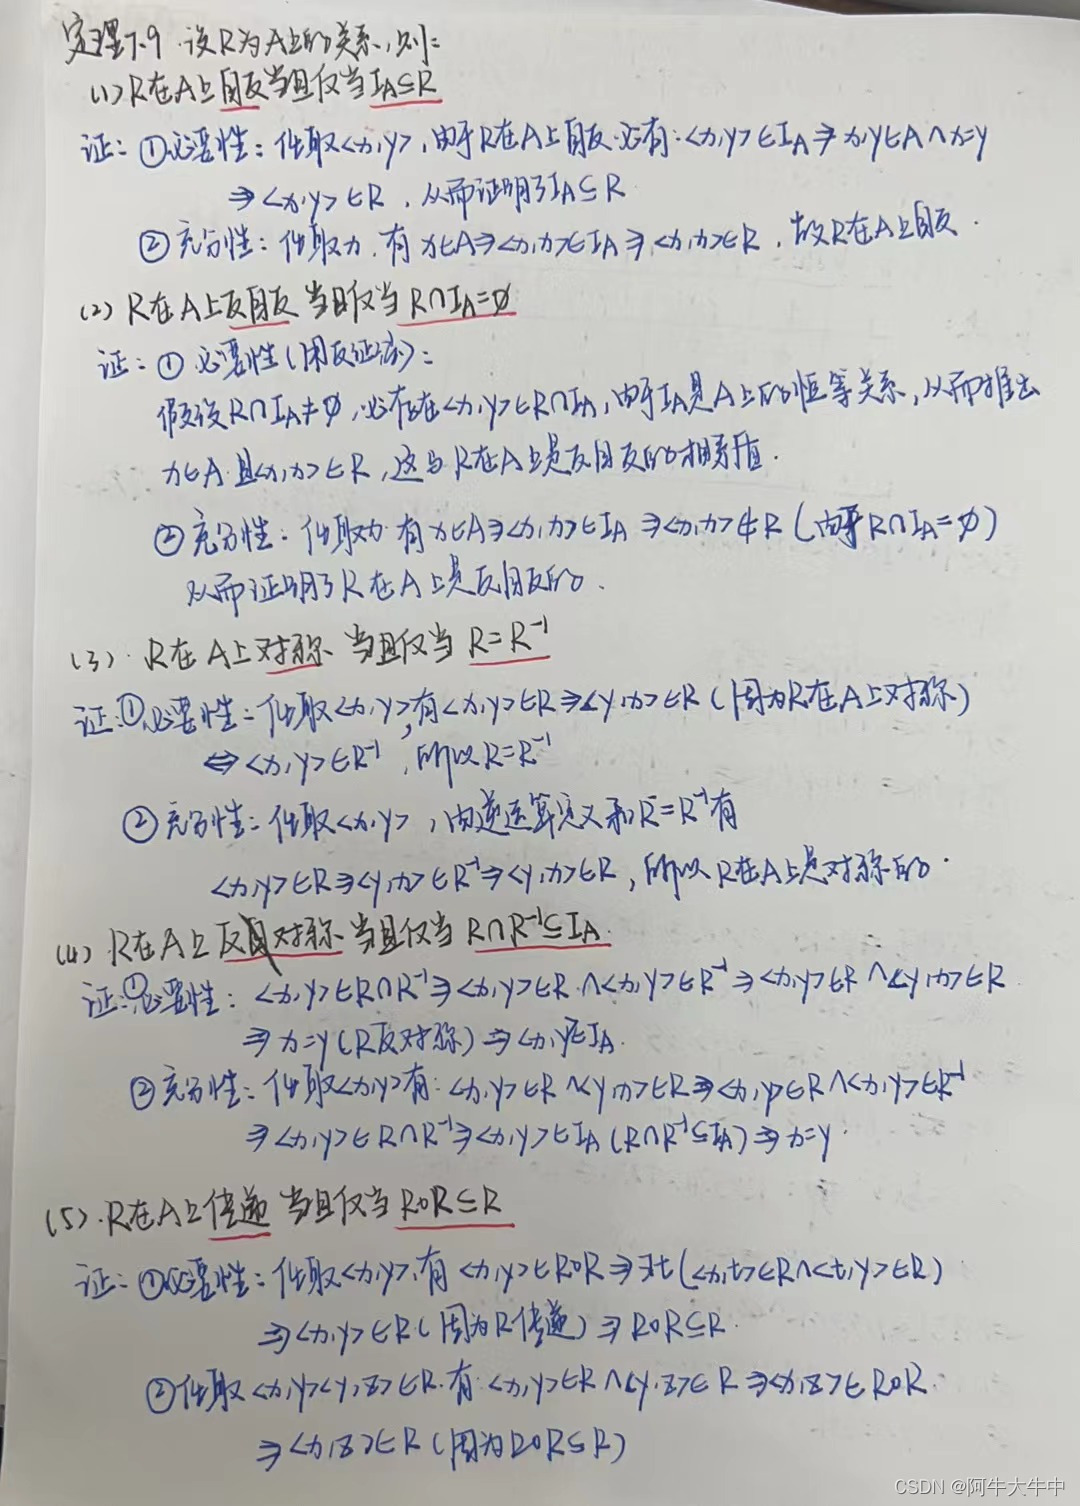 定理7.9 设R为A上的关系,则:
(1)R在A上自反当且仅当I_A⊆R
证: ①必要性: 任取<x,y>,由于R在A上自反必有:<x,y>∈I_A⇒x,y∈A∧x=y
⇒<x,y>∈R,从而证明了I_A⊆R
②充分性: 任取x,有x∈A⇒<x,x>∈I_A⇒<x,x>∈R,故R在A上自反.
(2) R在A上反自反当且仅当R∩I_A=∅
证: ① 必要性(用反证法):
假设R∩I_A≠∅,必存在<x,y>∈R∩I_A,由于I_A是A上的恒等关系,从而推出
x∈A且<x,x>∈R,这与R在A上是反自反的相矛盾.
②充分性: 任取x有x∈A⇒<x,x>∈I_A⇒<x,x>∉R(由于R∩I_A=∅)
从而证明了R在A上是反自反的.
(3). R在A上对称 当且仅当 R=R⁻¹
证:①必要性:任取<x,y>,有<x,y>∈R⇒<y,x>∈R(因为R在A上对称)
⇔<x,y>∈R⁻¹,所以R=R⁻¹
②充分性:任取<x,y>,由逆运算定义和R=R⁻¹有
<x,y>∈R⇒<y,x>∈R⁻¹⇒<y,x>∈R,所以R在A上是对称的.
(4) R在A上反对称当且仅当 R∩R⁻¹⊆I_A.
证:①必要性: <x,y>∈R∩R⁻¹⇒<x,y>∈R∧<x,y>∈R⁻¹⇒<x,y>∈R∧<y,x>∈R
⇒x=y(R反对称)⇒<x,y>∈I_A.
②充分性: 任取<x,y>有:<x,y>∈R∧<y,x>∈R⇒<x,y>∈R∧<x,y>∈R⁻¹
⇒<x,y>∈R∩R⁻¹⇒<x,y>∈I_A(R∩R⁻¹⊆I_A)⇒x=y.
(5).R在A上传递 当且仅当R∘R⊆R
证:①必要性:任取<x,y>,有<x,y>∈R∘R⇒∃t(<x,t>∈R∧<t,y>∈R)
⇒<x,y>∈R(因为R传递)⇒R∘R⊆R.
②任取<x,y><y,z>∈R.有:<x,y>∈R∧<y,z>∈R⇒<x,z>∈R∘R.
⇒<x,z>∈R(因为R∘R⊆R)
CSDN @阿牛大牛中